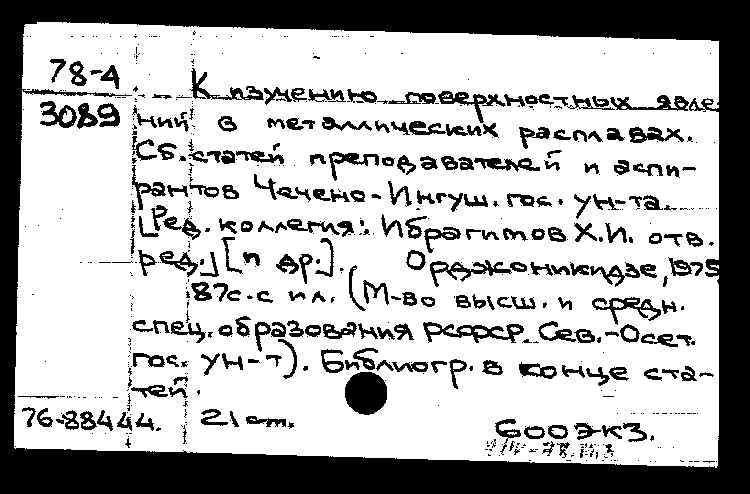 78-4
К изучению поверхностных явле-
3089
ний в металлических расплавах.
Сб. статей преподавателей и аспи-
рантов Чечено-Ингуш. гос. ун-та.
[Ред. коллегия: Ибрагимов Х.И. отв.
ред.] [и др.]. Орджоникидзе, 1975
87с. с ил. (М-во высш. и средн.
спец. образования РСФСР. Сев.-Осет.
гос. ун-т). Библиогр. в конце ста-
тей.
76-88444. 21 cm. 600 экз.